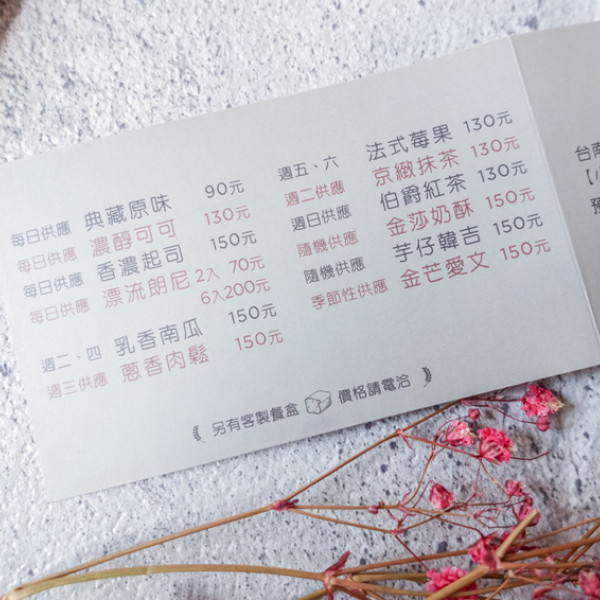 每日供應 典藏原味 90元
每日供應 濃醇可可 130元
每日供應 香濃起司 150元
每日供應 漂流朗尼 2入 70元
6入200元
週二、四 乳香南瓜 150元
週三供應 蔥香肉鬆 150元
週五、六 法式莓果 130元
週二供應 京緻抹茶 130元
週日供應 伯爵紅茶 130元
隨機供應 金莎奶酥 150元
隨機供應 芋仔韓吉 150元
季節性供應 金芒愛文 150元
《 另有客製餐盒 價格請電洽 》
台南
【小
預